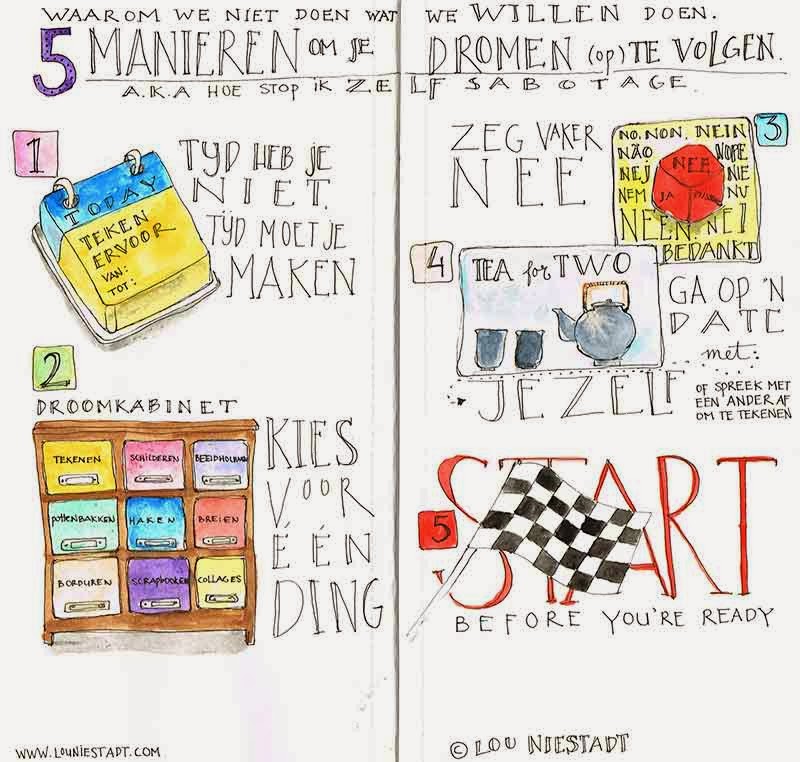 WAAROM WE NIET DOEN WAT WE WILLEN DOEN.
5 MANIEREN OM JE DROMEN (op) TE VOLGEN.
A.K.A HOE STOP IK ZELFSABOTAGE.
1
TODAY
TEKEN
ERVOOR
VAN:
TOT:
TIJD HEB JE
NIET.
TIJD MOET JE
MAKEN
2
DROOMKABINET
TEKENEN
SCHILDEREN
BEELDHOUWEN
pottenBAKKEN
HAKEN
BREIEN
BORDUREN
SCRAPBOOKEN
COLLAGES
KIES
VOOR
ÉÉN
DING
ZEG VAKER
NEE
3
NO. NON. NEIN
NÃO NOPE
NEJ NIE
NEM NU
NEEN. NEI
BEDANKT
NEE
JA
4
TEA for TWO
GA OP 'N
DATE
met:
JEZELF
OF SPREEK MET
EEN ANDER AF
OM TE TEKENEN
5
START
BEFORE YOU'RE READY
WWW.LOUNIESTADT.COM
© LOU NIESTADT